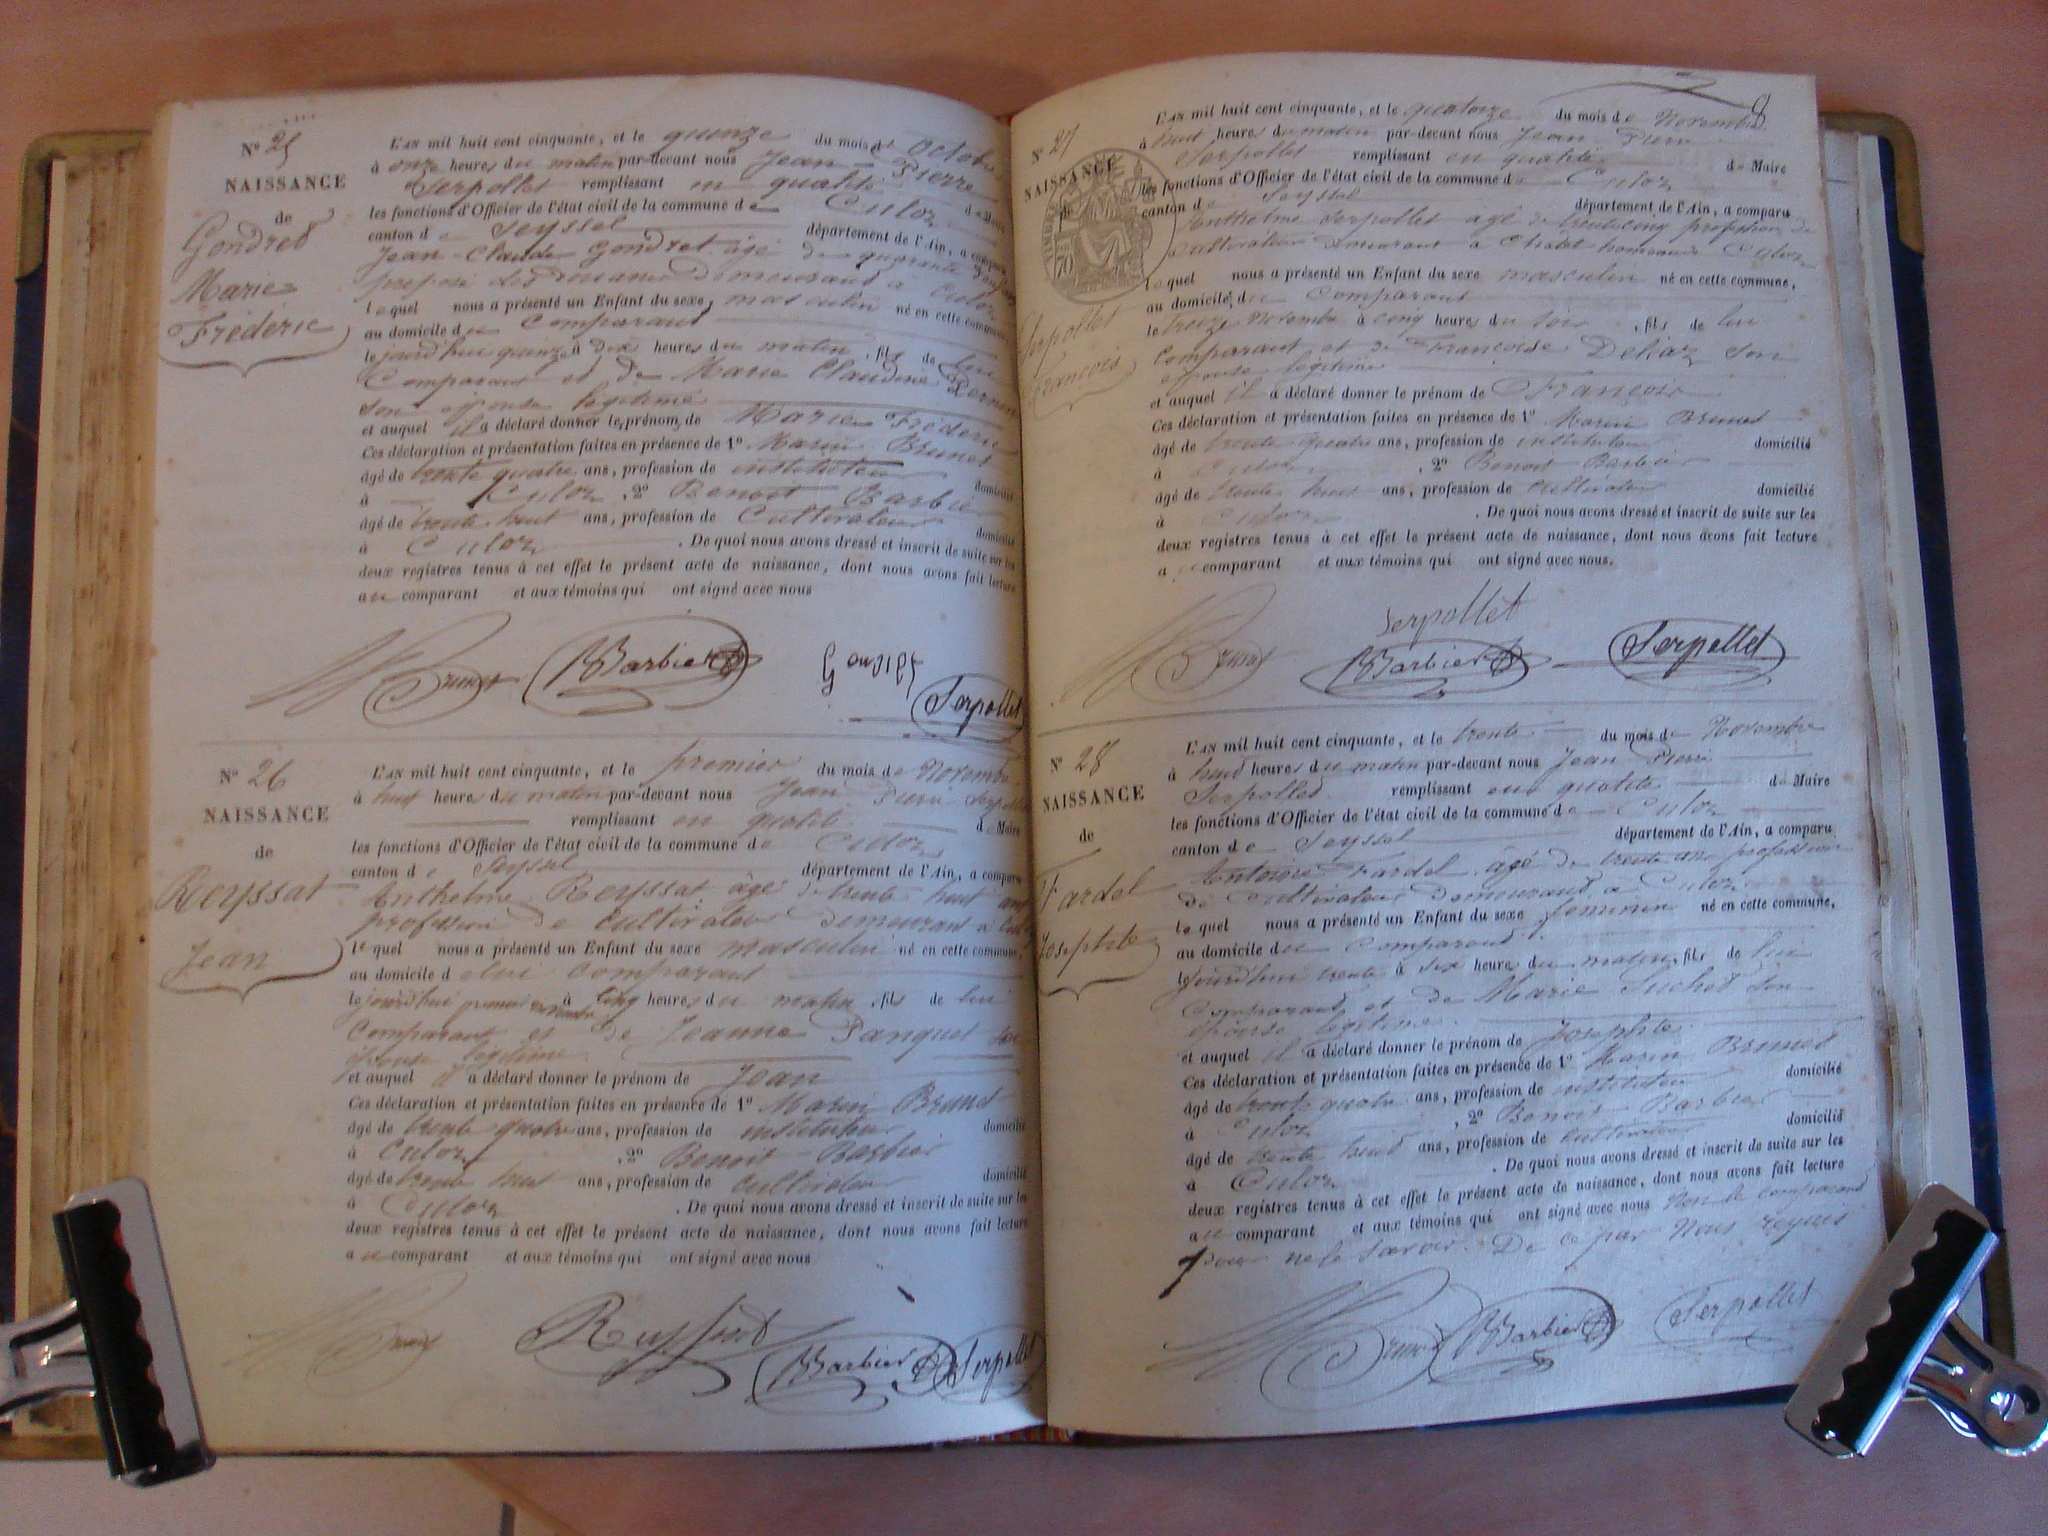 N° 25
NAISSANCE
de
Gondret
Marie
Fréderic
L'AN mil huit cent cinquante, et le quinze du mois de Octobre
à onze heures du matin par-devant nous Jean Pierre
Serpollet remplissant en qualité de Maire
les fonctions d'Officier de l'état civil de la commune de Culoz
canton de Seyssel département de l'Ain, a comparu
Jean-Claude Gondret âgé de quarante
préposé des douanes demeurant à Culoz
lequel nous a présenté un Enfant du sexe masculin né en cette commune
au domicile du Comparant
le jourd'hui quinze à dix heures du matin, fils de lui
Comparant et de Marie Claudine
son épouse légitime
et auquel il a déclaré donner le prénom de Marie Fréderic
Ces déclaration et présentation faites en présence de 1° Marin Brunet
âgé de trente quatre ans, profession de instituteur domicilié
à Culoz, 2° Benoit Barbier
âgé de trente huit ans, profession de Cultivateur domicilié
à Culoz. De quoi nous avons dressé et inscrit de suite sur les
deux registres tenus à cet effet le présent acte de naissance, dont nous avons fait lecture
au comparant et aux témoins qui ont signé avec nous
Brunet Barbier Gondret
Serpollet
N° 26
NAISSANCE
de
Reyssat
Jean
L'AN mil huit cent cinquante, et le premier du mois de Novembre
à huit heures du matin par-devant nous Jean Pierre Serpollet
remplissant en qualité de Maire
les fonctions d'Officier de l'état civil de la commune de Culoz
canton de Seyssel département de l'Ain, a comparu
Anthelme Reyssat âgé de trente huit ans
profession de Cultivateur demeurant à Culoz
lequel nous a présenté un Enfant du sexe masculin né en cette commune,
au domicile de lui comparant
le jourd'hui premier novembre à cinq heures du matin, fils de lui
Comparant et de Jeanne Panquet son
épouse légitime
et auquel il a déclaré donner le prénom de Jean
Ces déclaration et présentation faites en présence de 1° Marin Brunet
âgé de trente quatre ans, profession de instituteur domicilié
à Culoz, 2° Benoit Barbier
âgé de trente huit ans, profession de cultivateur domicilié
à Culoz. De quoi nous avons dressé et inscrit de suite sur les
deux registres tenus à cet effet le présent acte de naissance, dont nous avons fait lecture
au comparant et aux témoins qui ont signé avec nous
Brunet Barbier Serpollet
8
N° 27
NAISSANCE
de
Serpollet
François
L'AN mil huit cent cinquante, et le quatorze du mois de Novembre
à huit heures du matin par-devant nous Jean Pierre
Serpollet remplissant en qualité de Maire
les fonctions d'Officier de l'état civil de la commune de Culoz
canton de Seyssel département de l'Ain, a comparu
Anthelme Serpollet âgé de trente cinq profession de
cultivateur demeurant à Chatel hameau de Culoz
lequel nous a présenté un Enfant du sexe masculin né en cette commune,
au domicile du Comparant
le treize Novembre à cinq heures du soir, fils de lui
Comparant et de Françoise son
épouse légitime
et auquel il a déclaré donner le prénom de François
Ces déclaration et présentation faites en présence de 1° Marin Brunet
âgé de trente quatre ans, profession de instituteur domicilié
à Culoz, 2° Benoit Barbier
âgé de trente huit ans, profession de cultivateur domicilié
à Culoz. De quoi nous avons dressé et inscrit de suite sur les
deux registres tenus à cet effet le présent acte de naissance, dont nous avons fait lecture
au comparant et aux témoins qui ont signé avec nous.
Serpollet
Brunet Barbier Serpollet
N° 28
NAISSANCE
de
Fardel
Josephte
L'AN mil huit cent cinquante, et le trente du mois de Novembre
à huit heures du matin par-devant nous Jean Pierre
Serpollet remplissant en qualité de Maire
les fonctions d'Officier de l'état civil de la commune de Culoz
canton de Seyssel département de l'Ain, a comparu
Antoine Fardel âgé de trente ans profession
de Cultivateur demeurant à Culoz
lequel nous a présenté un Enfant du sexe feminin né en cette commune,
au domicile du Comparant
le jourd'hui trente à six heures du matin, fils de lui
Comparant et de Marie Suchet son
épouse légitime
et auquel il a déclaré donner le prénom de Josephte
Ces déclaration et présentation faites en présence de 1° Marin Brunet
âgé de trente quatre ans, profession de instituteur domicilié
à Culoz, 2° Benoit Barbier
âgé de trente huit ans, profession de cultivateur domicilié
à Culoz. De quoi nous avons dressé et inscrit de suite sur les
deux registres tenus à cet effet le présent acte de naissance, dont nous avons fait lecture
au comparant et aux témoins qui ont signé avec nous Non le comparant
pour ne le savoir. De ce par Nous requis
Brunet Barbier Serpollet